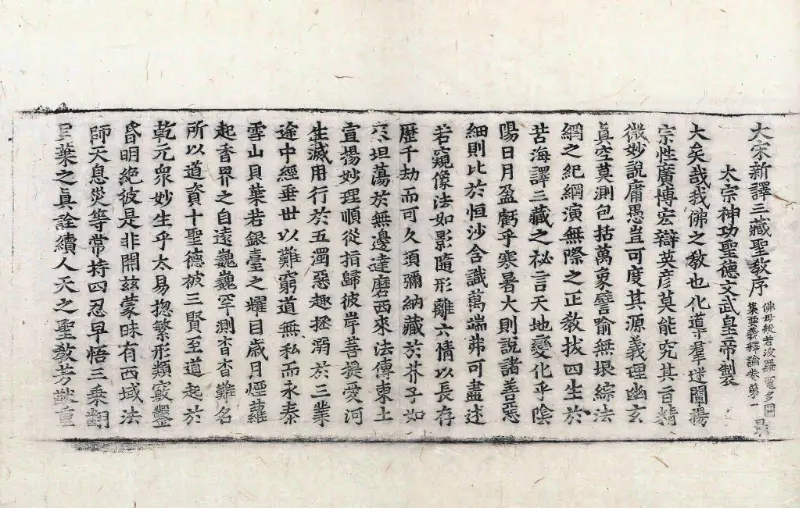 大宋新譯三藏聖教序 佛母般若波羅蜜多圓
集要義釋論卷第一 景
太宗神功聖德文武皇帝製
大矣哉我佛之教也化導羣迷闡揚
宗性廣博宏辯英彦莫能究其旨精
微妙說庸愚豈可度其源義理幽玄
眞空莫測包括萬象譬喻無垠綜法
網之紀綱演無際之正教拔四生於
苦海譯三藏之祕言天地變化乎陰
陽日月盈虧乎寒暑大則說諸善惡
細則比於恒沙含識萬端弗可盡述
若窺像法如影隨形離六情以長存
歷千劫而可久須彌納藏於芥子如
來坦蕩於無邊達磨西來法傳東土
宣揚妙理順從指歸彼岸菩提愛河
生滅用行於五濁惡趣拯溺於三業
途中經垂世以難窮道無私而永泰
雪山貝葉若銀臺之耀目歲月煙蘿
起香界之自遠巍巍罕測杳杳難名
所以道資十聖德被三賢至道起於
乾元衆妙生乎太易揔繁形類竅鑿
昏明絶彼是非開兹蒙昧有西域法
師天息災等常持四忍早悟三乘翻
貝葉之眞詮續人天之聖教芳猷重